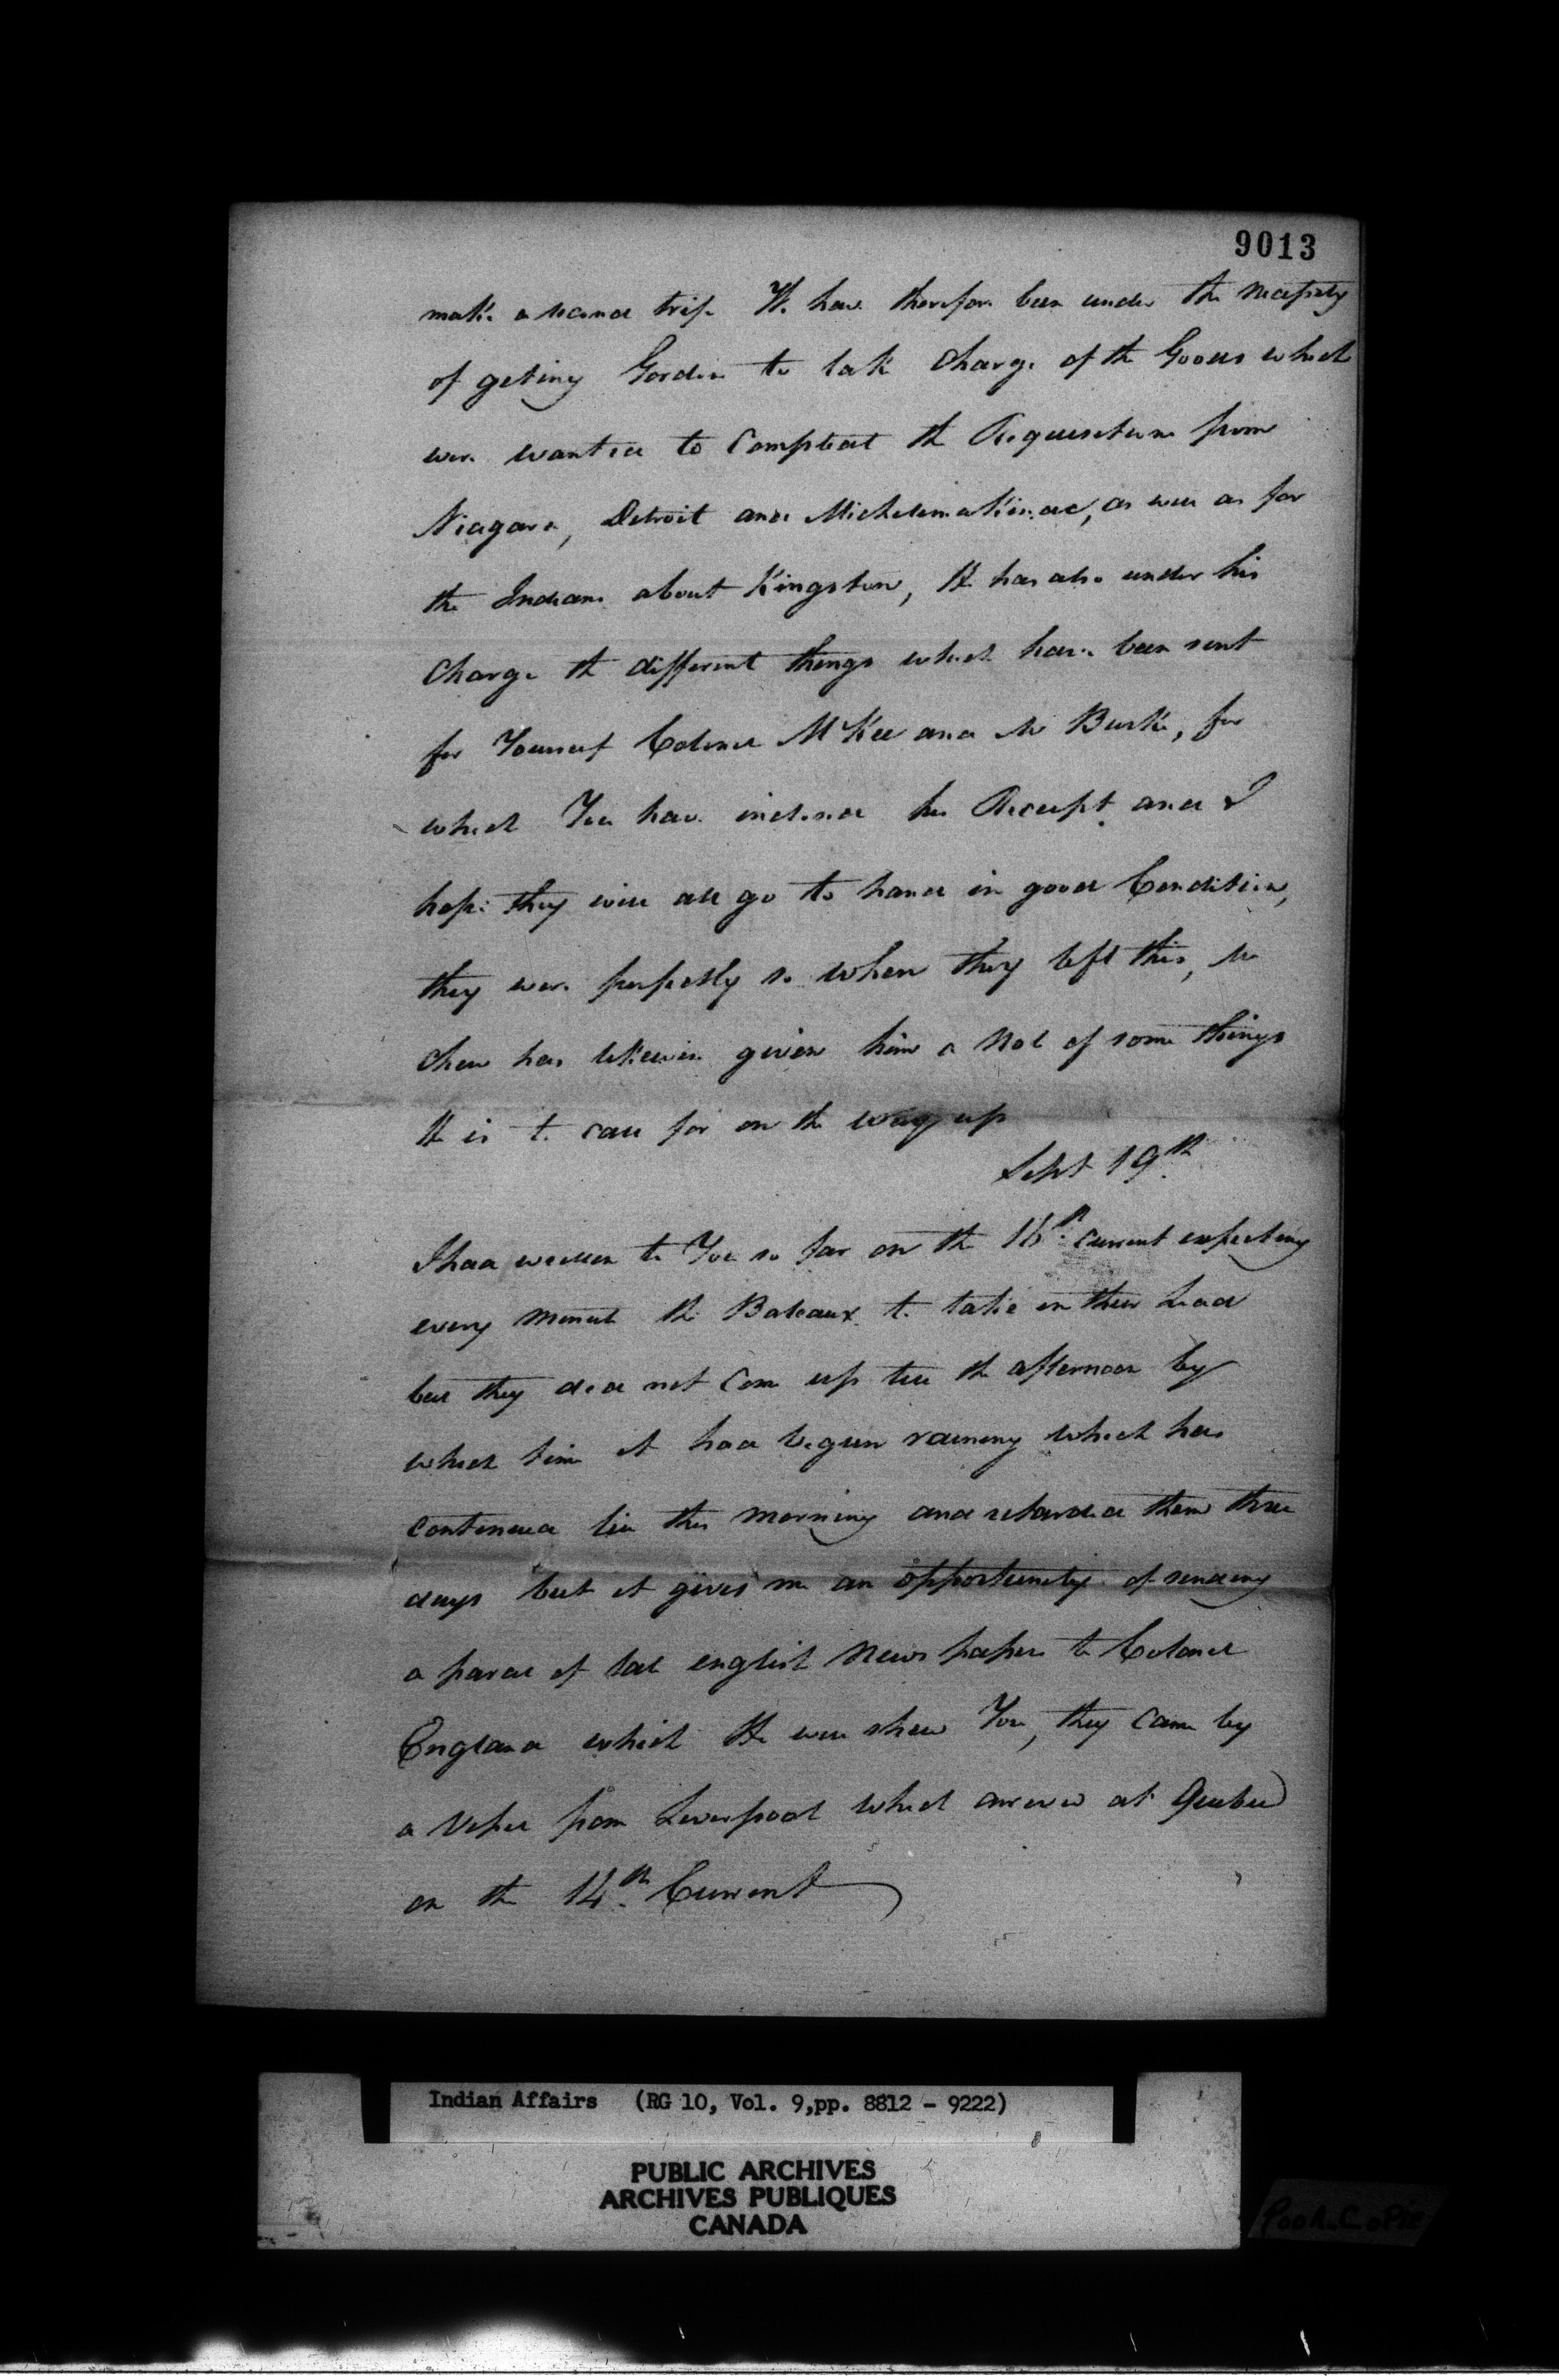 9013
make a second trip We have therefore been under the necessity
of geting Gordon to take Charge of the Goods which
were wanted to Compleat the Requisitions from
Niagara, Detroit and Michelemakinac, as well as for
the Indians about Kingston, He has also under his
Charge the different things which have been sent
for Yourself Colonel McKee and Mr Burke, for
which You have inclosed his Receipt and I
hope they will all go to hand in good Condition,
they were perfectly so when they left this, Mr
Chew has likewise given him a Note of some things
He is to call for on the way up
Sept 19th
I had written to You so far on the 16th current expecting
every minute the Bateaux to take in their Load
but they did not come up till the afternoon by
which time it had begun raining which has
continued till this morning and retarded them three
days but it gives me an opportunity of sending
a parcel of late english News papers to Colonel
England which He will shew You, they came by
a Vessel from Liverpool which arrived at Quebec
on the 14th Current
Indian Affairs (RG 10, Vol. 9,pp. 8812 - 9222)
PUBLIC ARCHIVES
ARCHIVES PUBLIQUES
CANADA
Poor Copie